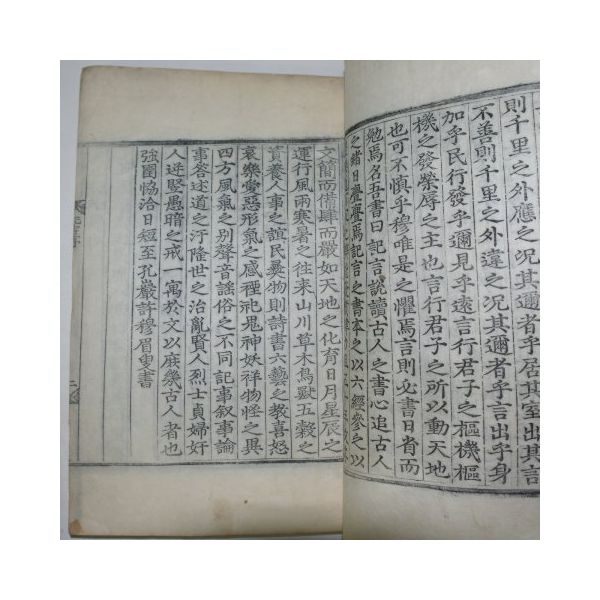 則千里之外應之況其邇者乎居其室出其言
不善則千里之外違之況其邇者乎言出乎身
加乎民行發乎邇見乎遠言行君子之樞機樞
機之發榮辱之主也言行君子之所以動天地
也可不愼乎穆唯是之懼焉言則必書日省而
勉焉名吾書曰記言說讀古人之書心追古人
之緖日亹亹焉記言之書本之以六經參之以
文簡而備肆而嚴如天地之化育日月星辰之
運行風雨寒暑之往來山川草木鳥獸五穀之
資養人事之誼民彛物則詩書六藝之敎喜怒
哀樂愛惡形氣之感禋祀鬼神妖祥物怪之異
四方風氣之別聲音謠俗之不同記事叙事論
事答述道之汙隆世之治亂賢人烈士貞婦奸
人逆竪愚暗之戒一寓於文以庶幾古人者也
强圉恊洽日短至孔巖許穆眉叟書
二